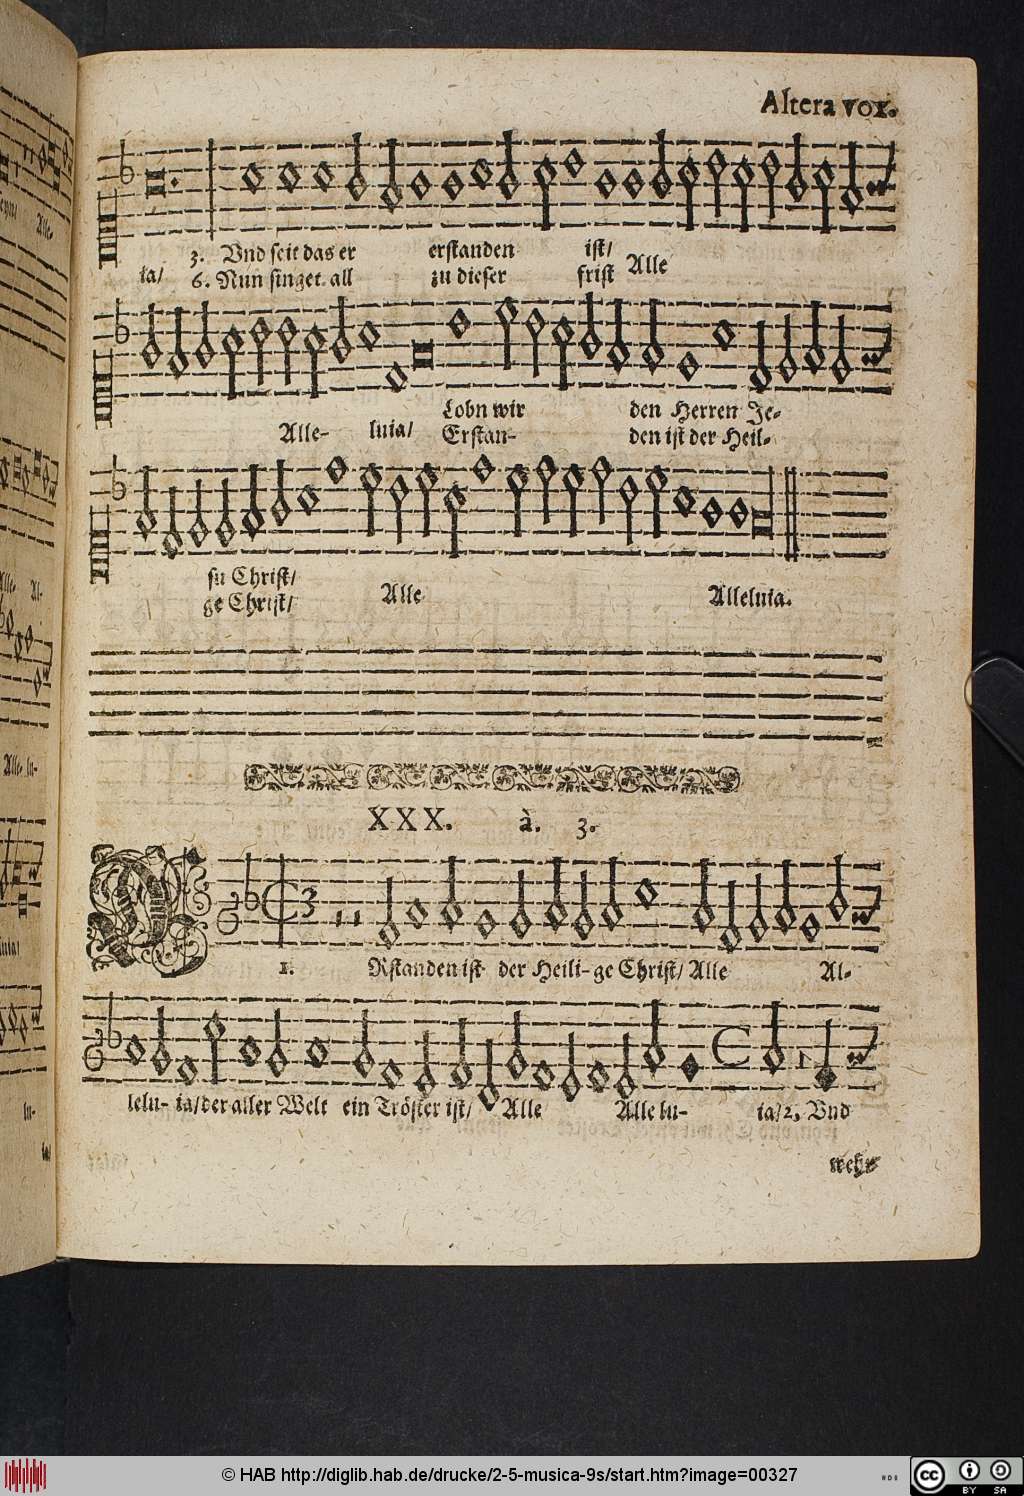 Altera vox.
3. Vnd seit das er erstanden ist/
ia/ 6. Nun singet all zu dieser frist Alle
Lobn wir den Herren Je-
Alle- luia/ Erstan- den ist der Heil-
su Christ/
ge Christ/ Alle Alleluia.
XXX. à. 3.
1. ERstanden ist der Heili-ge Christ/ Alle Al-
lelu- ia/ der aller Welt ein Tröster ist/ Alle Alle lu- ia/2, Vnd
wehr
© HAB http://diglib.hab.de/drucke/2-5-musica-9s/start.htm?image=00327
cc BY SA